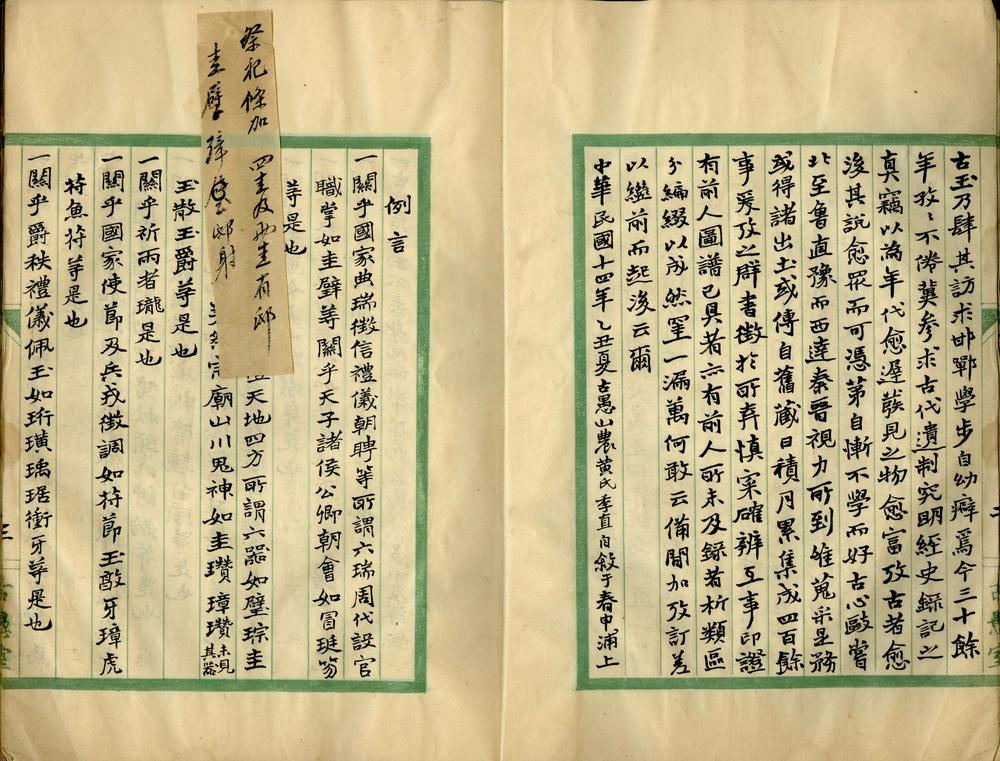 古玉乃肆其訪求邯鄲學步自幼癖焉今三十餘
年孜〻不倦冀參求古代遺制究明經史錄記之
真竊以為年代愈遲發見之物愈富攷古者愈
後其說愈眾而可憑第自慚不學而好古心敺嘗
北至魯直豫而西達秦晉視力所到雖蒐采是務
或得諸出土或傳自舊藏日積月累集成四百餘
事爰攷之群書徵於所弆慎寀確辨互事印證
有前人圖譜已具者亦有前人所未及錄者析類區
分編綴以成然罣一漏萬何敢云備間加攷訂差
以繼前而起後云爾
中華民國十四年乙丑夏古愚山農黃氏季直自敘于春申浦上
例言
一關乎國家典瑞徵信禮儀朝聘等所謂六瑞周代設官
職掌如圭璧等關乎天子諸侯公卿朝會如冒珽笏
等是也
祭祀條加四圭及兩圭有邸
圭璧璋邸射
天地四方所謂六器如璧琮圭
宗廟山川鬼神如圭瓚璋瓚未見其器
玉散玉爵等是也
一關乎祈雨者瓏是也
一關乎國家使節及兵戎徵調如符節玉敔牙璋虎
符魚符等是也
一關乎爵秩禮儀佩玉如珩璜瑀琚衝牙等是也
三